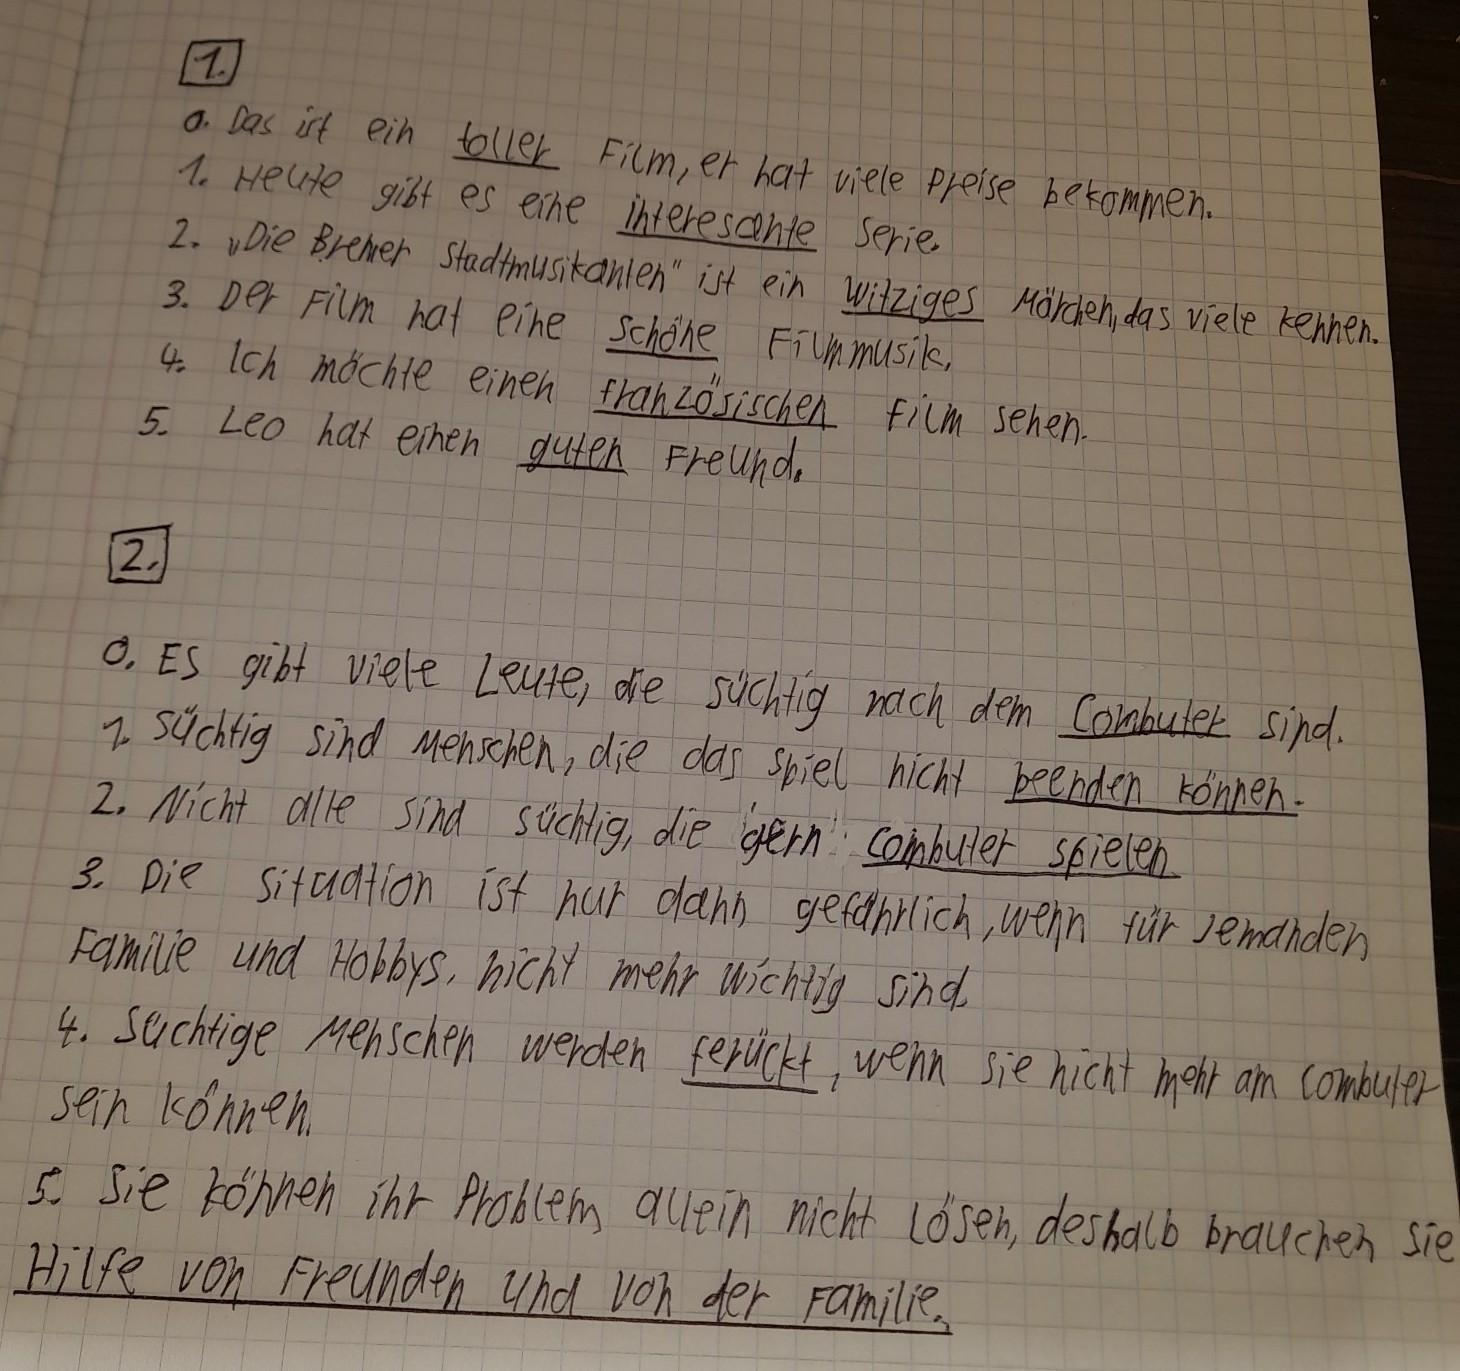 1.
0. Das ist ein toller Film, er hat viele Preise bekommen.
1. Heute gibt es eine interesante Serie.
2. „Die Bremer Stadtmusikanten" ist ein witziges Märchen, das viele kennen.
3. Der Film hat eine schöne Filmmusik.
4. Ich möchte einen französischen Film sehen.
5. Leo hat einen guten Freund.
2.
0. Es gibt viele Leute, die süchtig nach dem Combuter sind.
1. Süchtig sind Menschen, die das Spiel nicht beenden können.
2. Nicht alle sind süchtig, die gern combuter spielen
3. Die Situation ist nur dann gefährlich, wenn für jemanden
Familie und Hobbys, nicht mehr wichtig sind.
4. Süchtige Menschen werden ferückt, wenn sie nicht mehr am Combuter
sein können.
5. Sie können ihr Problem allein nicht lösen, deshalb brauchen sie
Hilfe von Freunden und von der Familie.